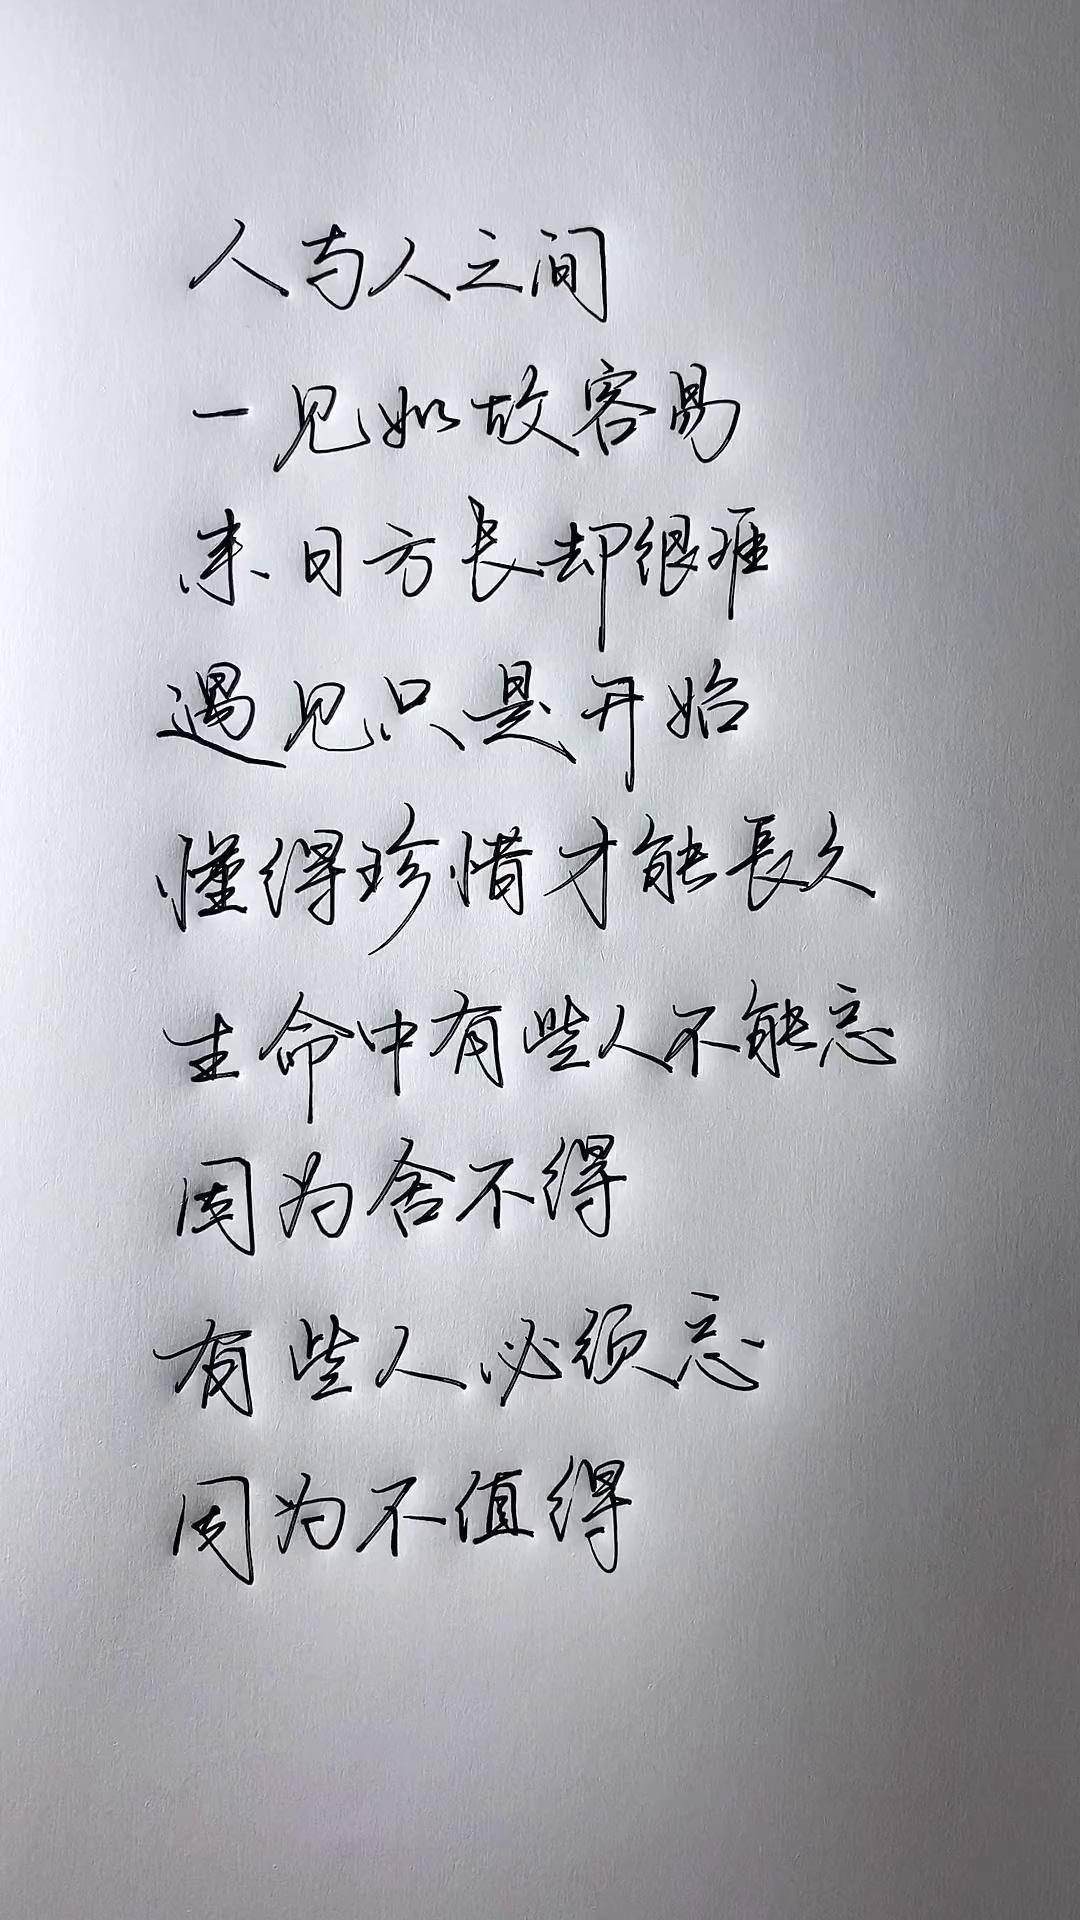 人与人之间
一见如故容易
来日方长却很难
遇见只是开始
懂得珍惜才能長久
生命中有些人不能忘
因为舍不得
有些人必须忘
因为不值得